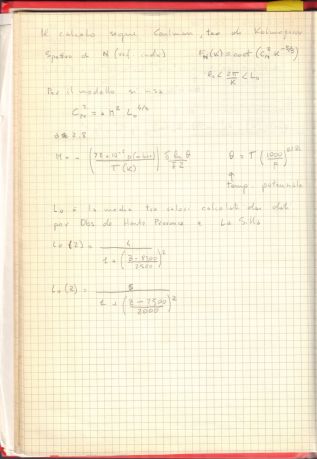 Il calcolo segue Coulman, teo di Kolmogorov
Spettro di N (rif. indice) F_N(K) = cost (C_N^2 K^{-5/3})
l_0 < 2π/K < L_0
Per il modello si usa
C_N^2 = a M^2 L_0^{4/3}
a = 2.8
M = - ( 78 × 10^{-6} P(mbar) / T(K) ) δ ln θ / δ z θ = T (1000/P)^{0.286}
↑
temp. potenziale
L_0 è la media tra valori calcolati da dati
per Obs de Haute Provence e La Silla
L_0(z) = 4 / (1 + ((z - 8500)/2500)^2)
L_0(z) = 5 / (1 + ((z - 7500)/2000)^2)